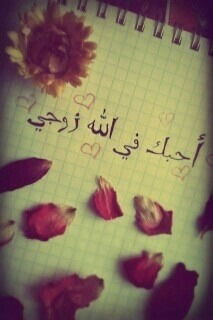 أحبك في الله زوجي